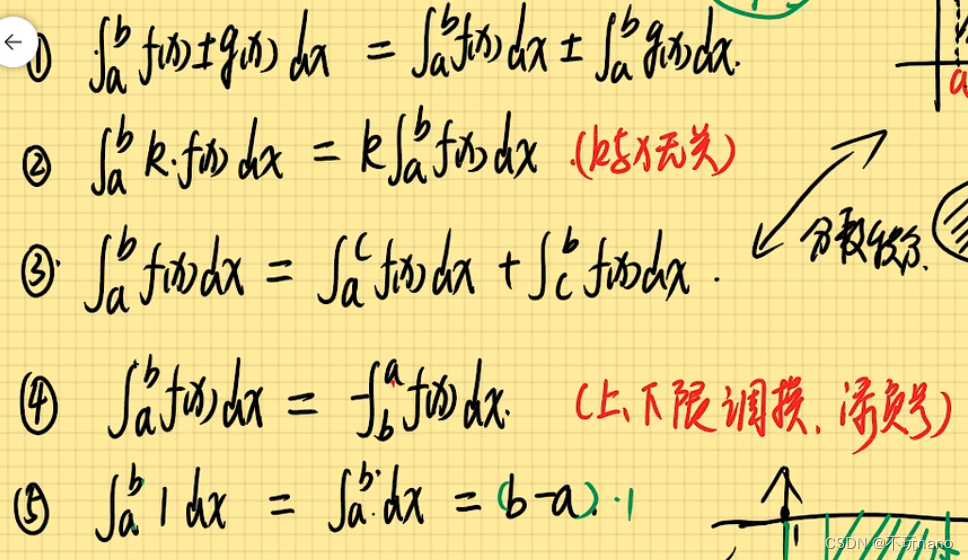 ① ∫ₐᵇ f(x)±g(x) dx = ∫ₐᵇ f(x) dx ± ∫ₐᵇ g(x) dx.
② ∫ₐᵇ k·f(x) dx = k∫ₐᵇ f(x) dx (k与x无关)
③ ∫ₐᵇ f(x) dx = ∫ₐᶜ f(x) dx + ∫꜀ᵇ f(x) dx.
分段积分.
④ ∫ₐᵇ f(x) dx = -∫_b^a f(x) dx. (上、下限调换、添负号)
⑤ ∫ₐᵇ 1 dx = ∫ₐᵇ dx = (b-a)·1
a
CSDN @不玩nano